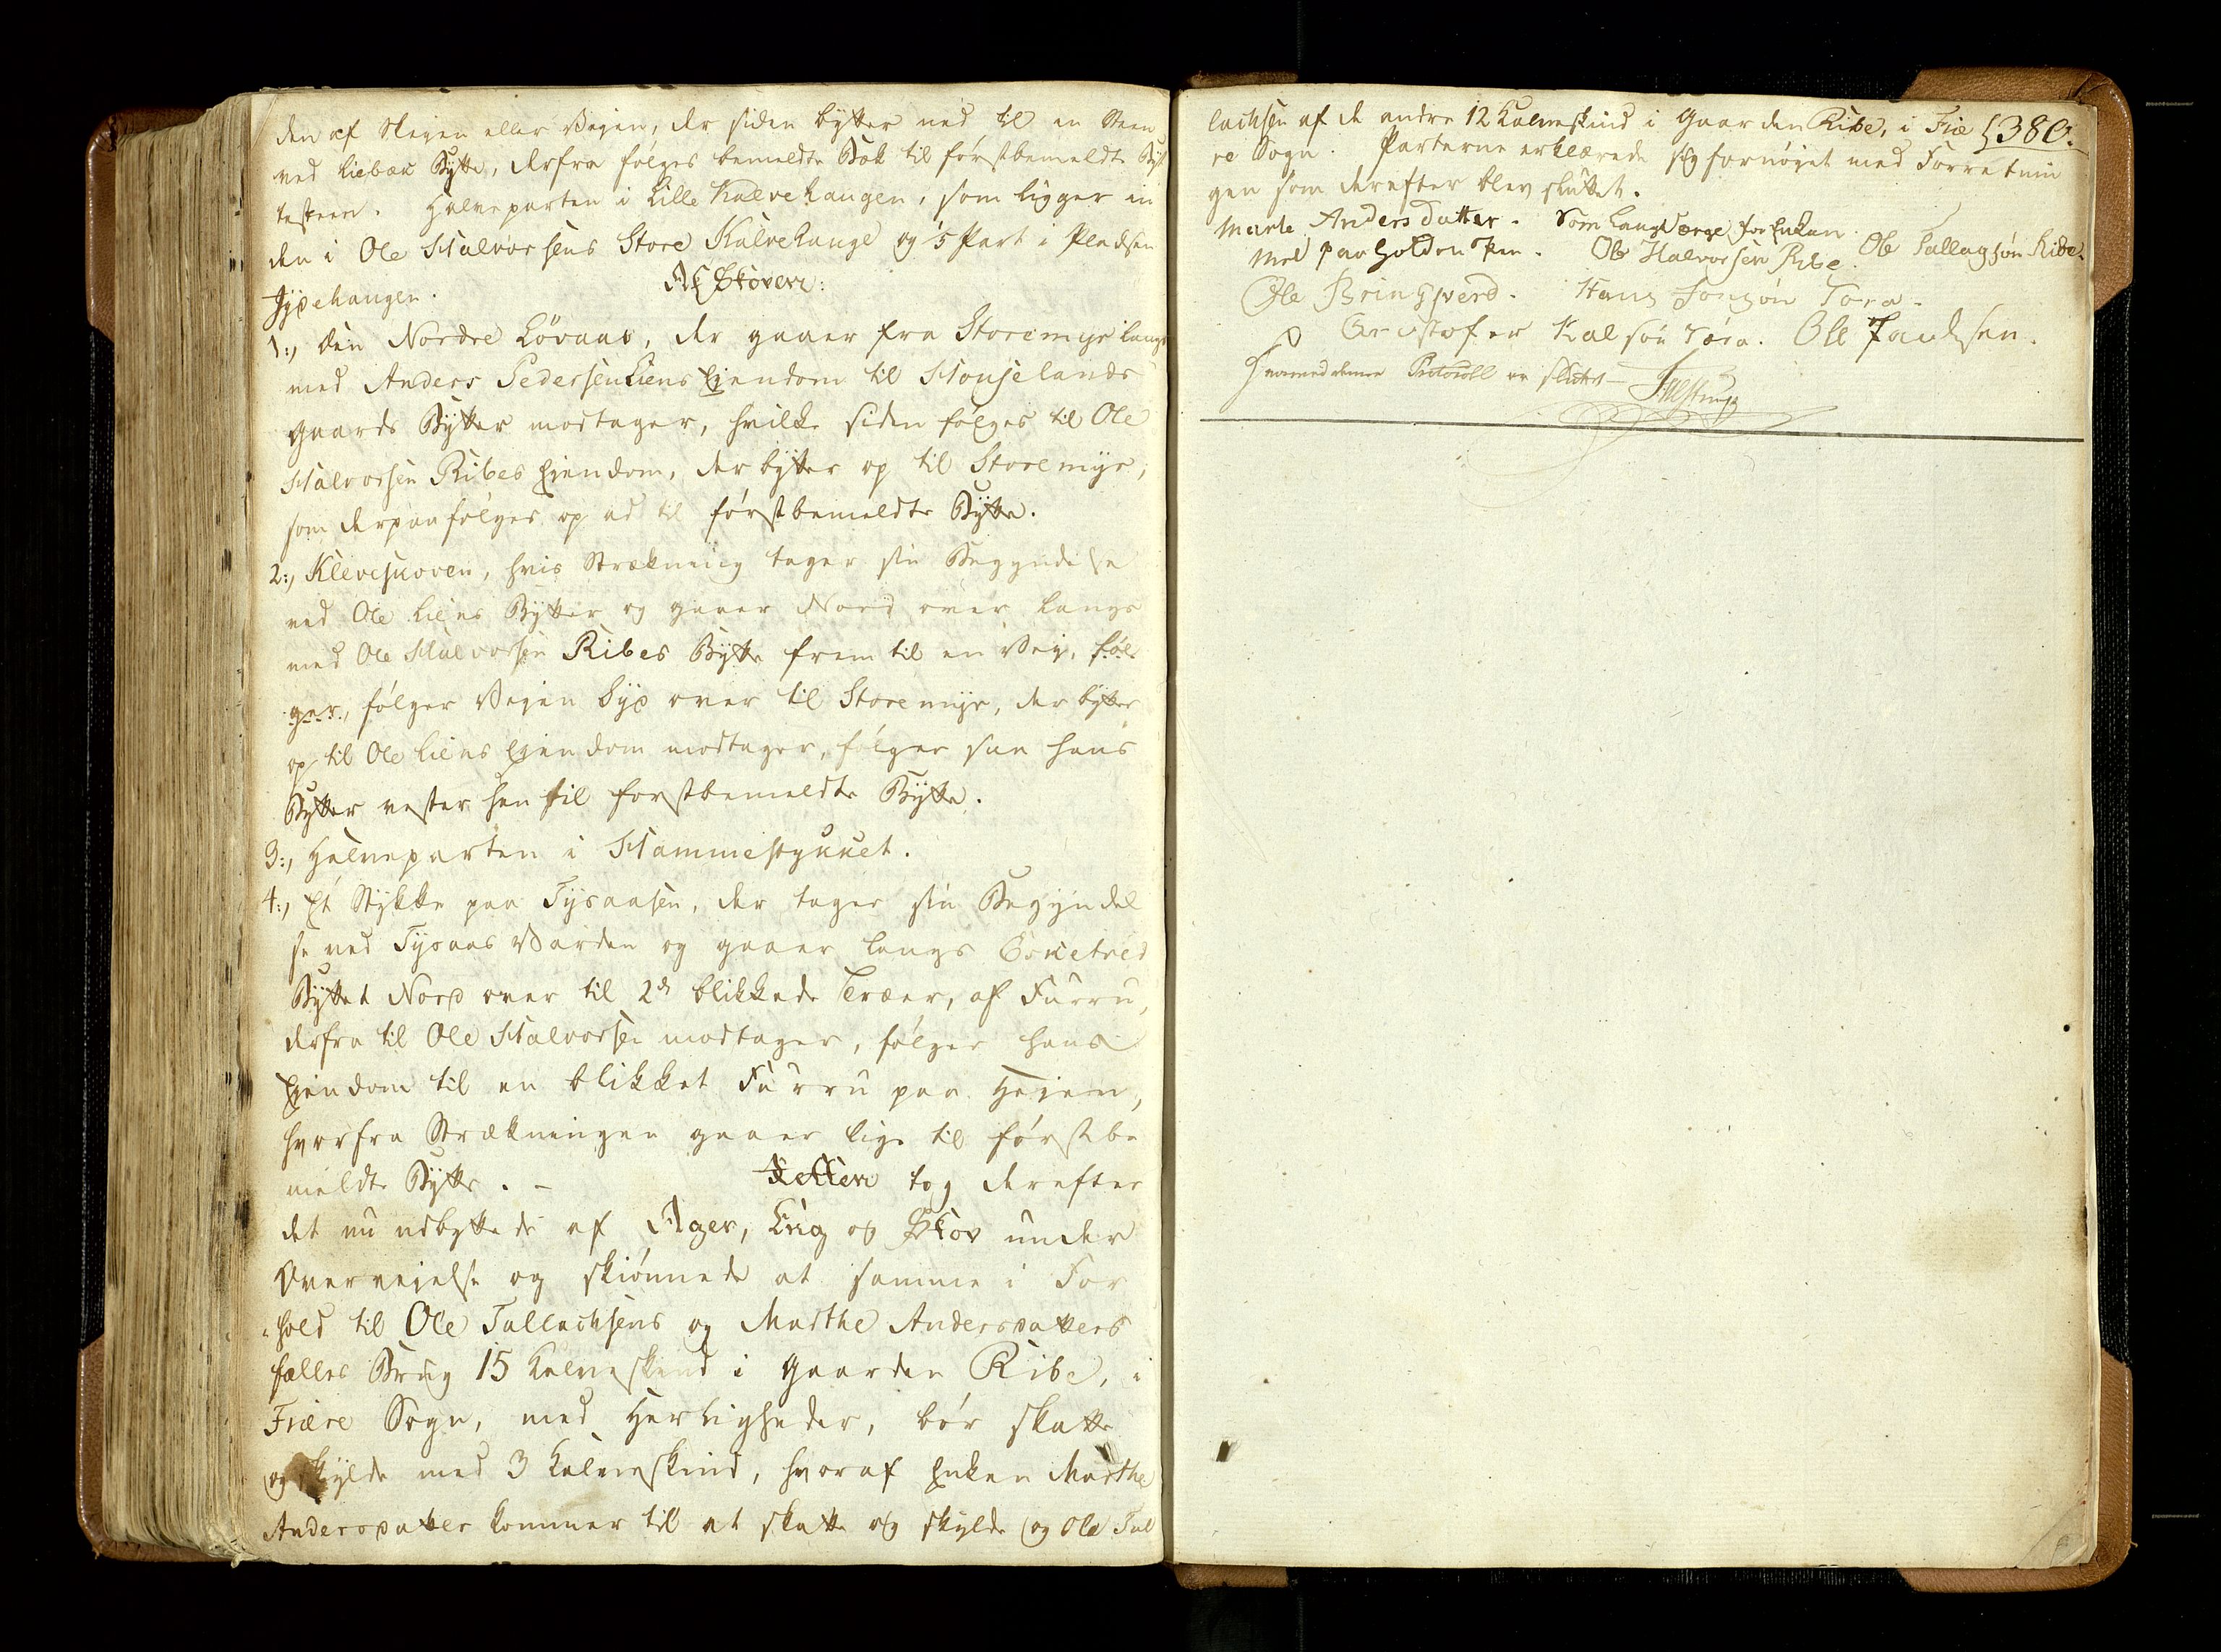 den af Skeyen eller Veÿen, der siden bÿtter ned til en Steen
ved Liebæk Bÿtte, derfra følges bemeldte Bæk til førstbemeldte Bÿt
testeen. Halveparten i Lille Kalvehaugen, som ligger in
den i Ole Halvorsens Store Kalvehauge og 5 Part i Pladsen
Jÿpehaugen.
Af Skoven:
1:, Den Nordre Lövaas, der gaaer fra Storemÿr langs
med Anders Pedersen Liens Eiendom til Houselands
Gaards Bÿtter modtager, hvilke siden følges til Ole
Halvorsen Ribes Eiendom, der bÿtter op til Storemÿr,
som derpaa følges op ad til førstbemeldte Bÿtte.
2:, Kleveskoven, hvis Strækning tager sin Begyndelse
ved Ole Liens Bÿtter og gaaer Nord over langs
med Ole Halvorsen Ribes Bÿtte frem til en Vej, føl
ger, følger Vejen Syd over til Storemÿr, der bÿtter
op til Ole Liens Eiendom modtager, følger saa hans
Bÿtter vester hen til førstbemeldte Bÿtte.
3:, Halveparten i Hammestykket.
4:, Et Stÿkke paa Tÿsaasen, der tager sin Begÿndel
se ved Tÿsaas Varden og gaaer langs Esketved
Bÿttet Nord over til 2de blikkede Træer, af Furru,
derfra til Ole Halvorsen modtager, følger hans
Eiendom til en blikket Furru paa Heien,
hvorfra Strækningen gaaer lige til førstbe
meldte Bÿtte. –
Retten tog derefter
det nu udbÿttede af Ager, Eng og Skov under
Overvejelse og skiønnede at samme i For
hold til Ole Tallachsens og Marthe Andersdatters
fælles Brug 15 Kalveskind i Gaarden Ribe, i
Fiære Sogn, med Herligheder, bør skatte
og skÿlde med 3 Kalveskind, hvoraf Enken Marthe
Andersdatter kommer til at skatte og skylde og Ole Tal
lachsen af de andre 12 Kalveskind i Gaarden Ribe, i Fiæ
380.
re Sogn. Parterne erklærede sig fornøiet med Forretnin
gen som derefter blev sluttet.
Marte Anders datter. Som Laugværge for Enken
med paaholden Pen. Ole Halvorsen Ribe. Ole Tallagsøn Ribe.
Ole Bringsverd. Hans Jonsøn Tora.
Cristofer Kalsøn Tøra. Ole Knudsen.
Hvormed denne Protocoll er sluttet –